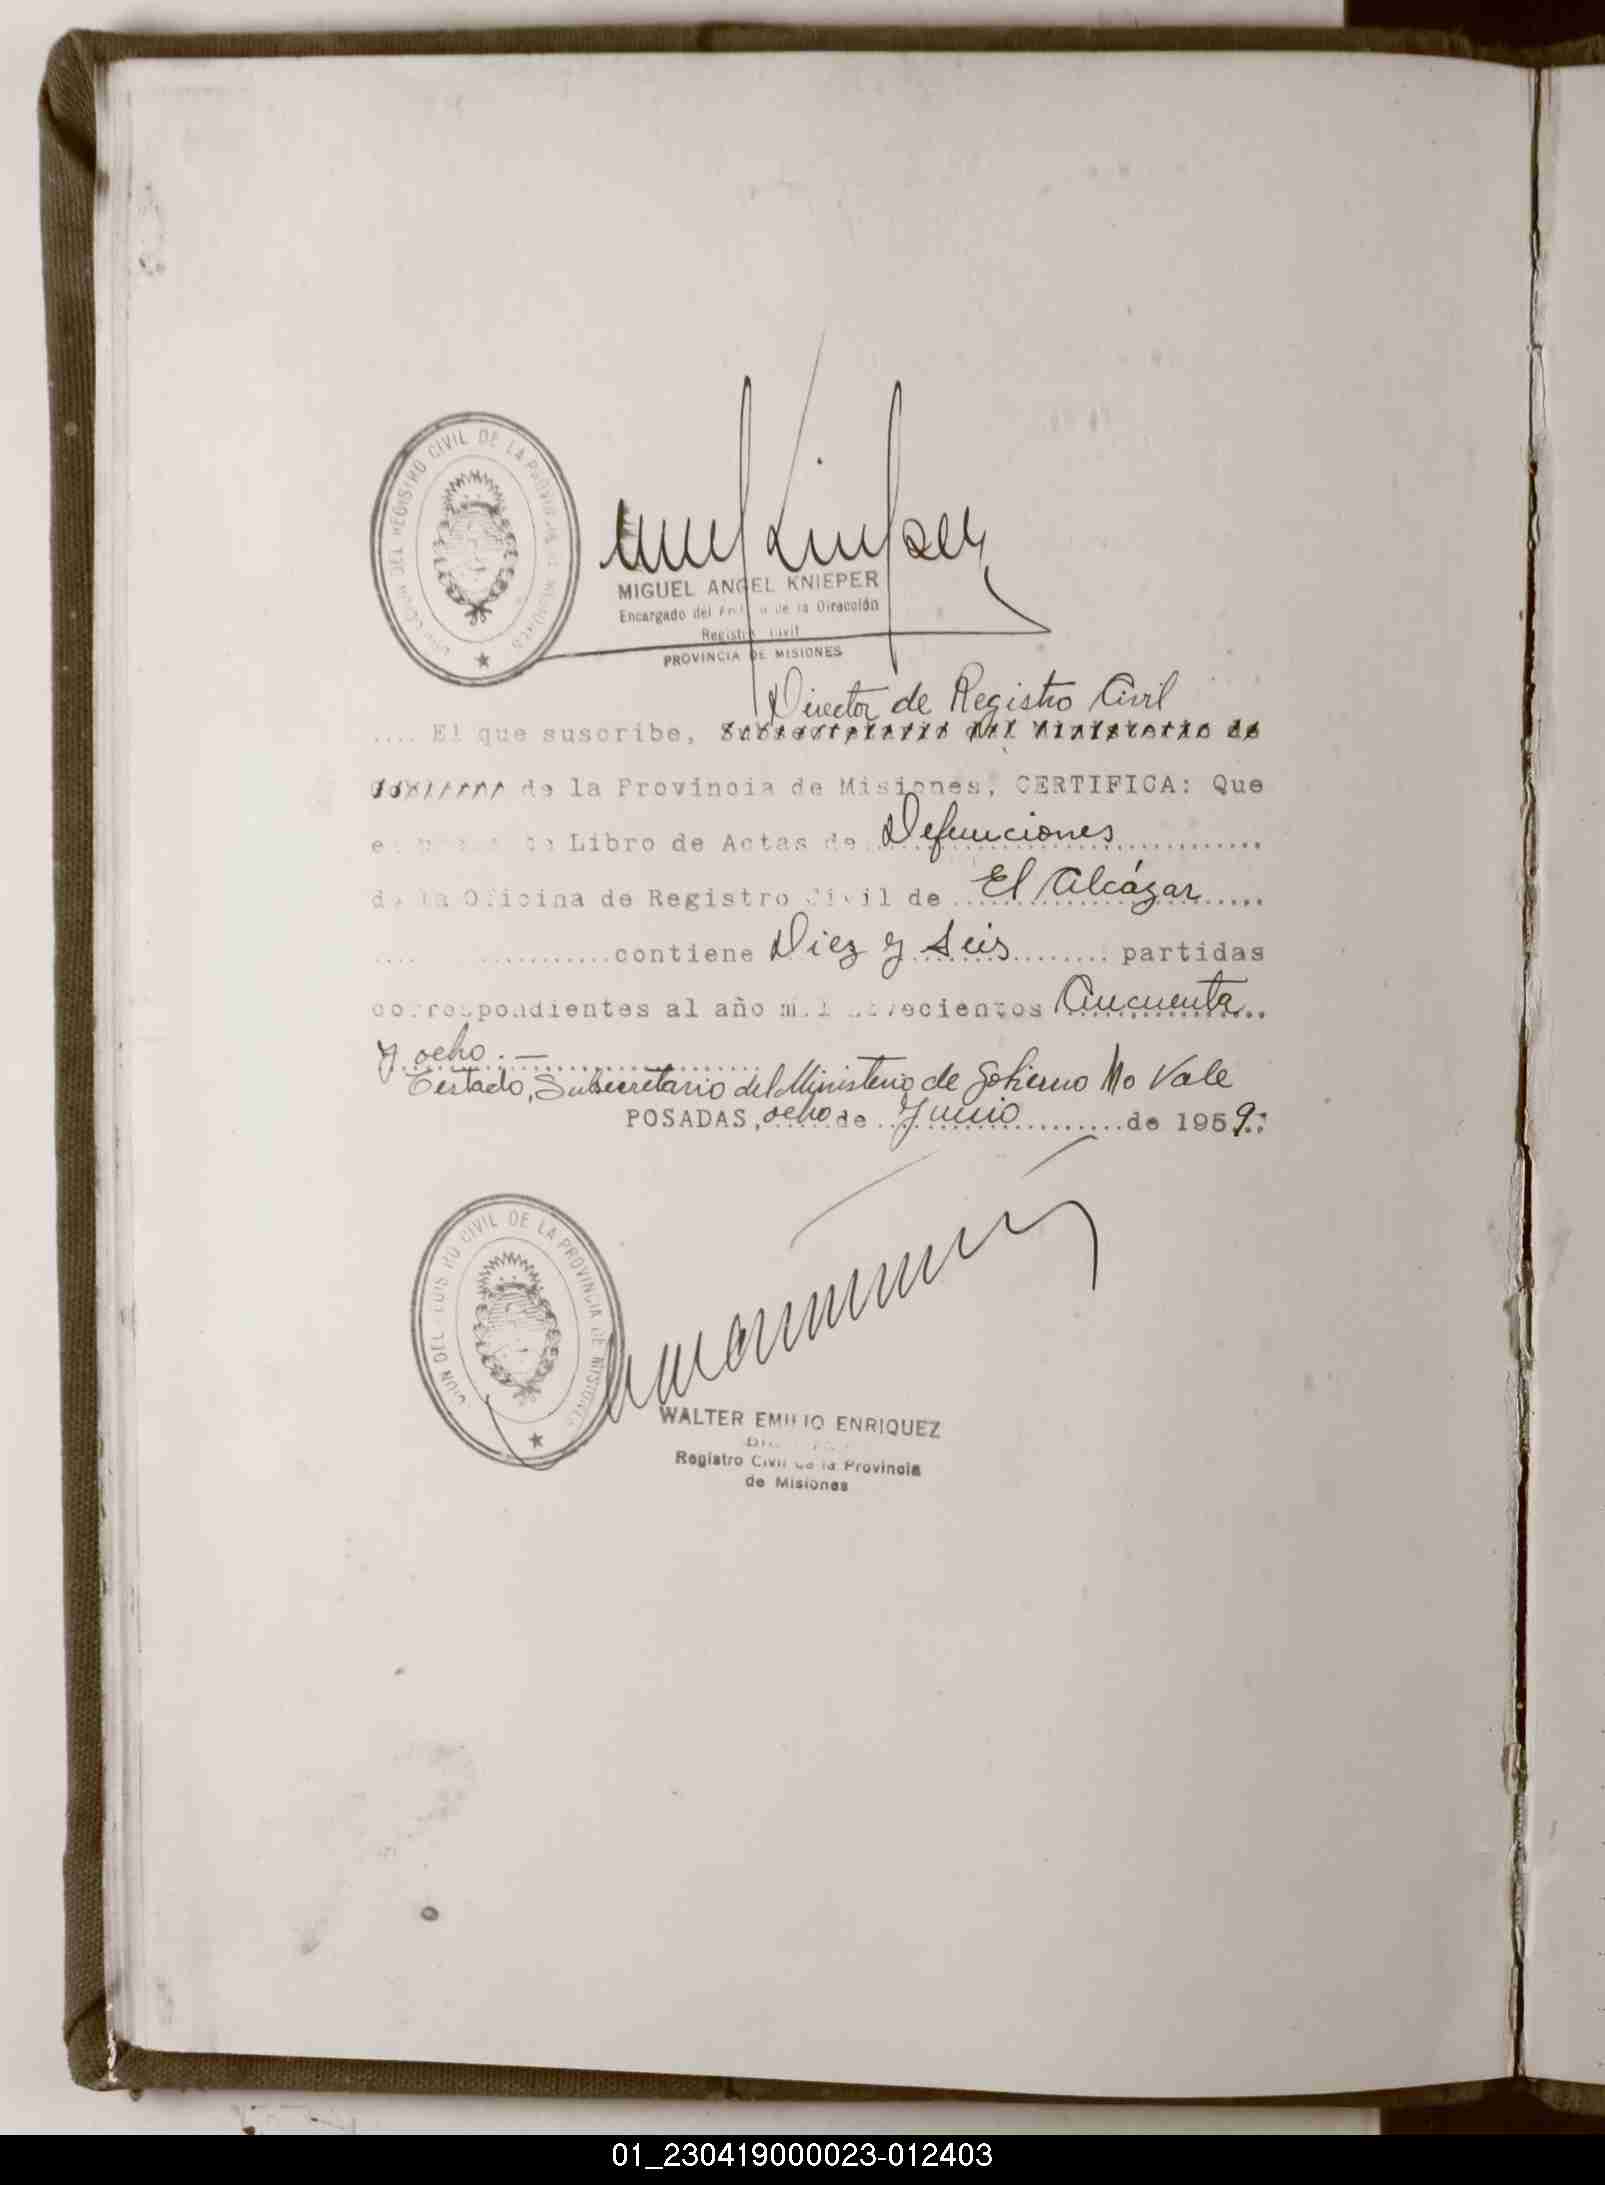 DEL REGISTRO CIVIL DE LA PROVINCIA DE MISIONES
MIGUEL ANGEL KNIEPER
Encargado del de la Dirección
Registro Civil
PROVINCIA DE MISIONES
Director de Registro Civil
.... El que suscribe, Subsecretario del Ministerio de
Gobierno de la Provincia de Misiones, CERTIFICA: Que
el presente Libro de Actas de Defunciones
de la Oficina de Registro Civil de El Alcázar
contiene Diez y Seis partidas
correspondientes al año mil novecientos Cincuenta
y ocho.—
Testado, Subsecretario del Ministerio de Gobierno No Vale
POSADAS, ocho de Junio de 1959.
CION DEL REGISTRO CIVIL DE LA PROVINCIA DE MISIONES
WALTER EMILIO ENRIQUEZ
Registro Civil de la Provincia
de Misiones
01_230419000023-012403